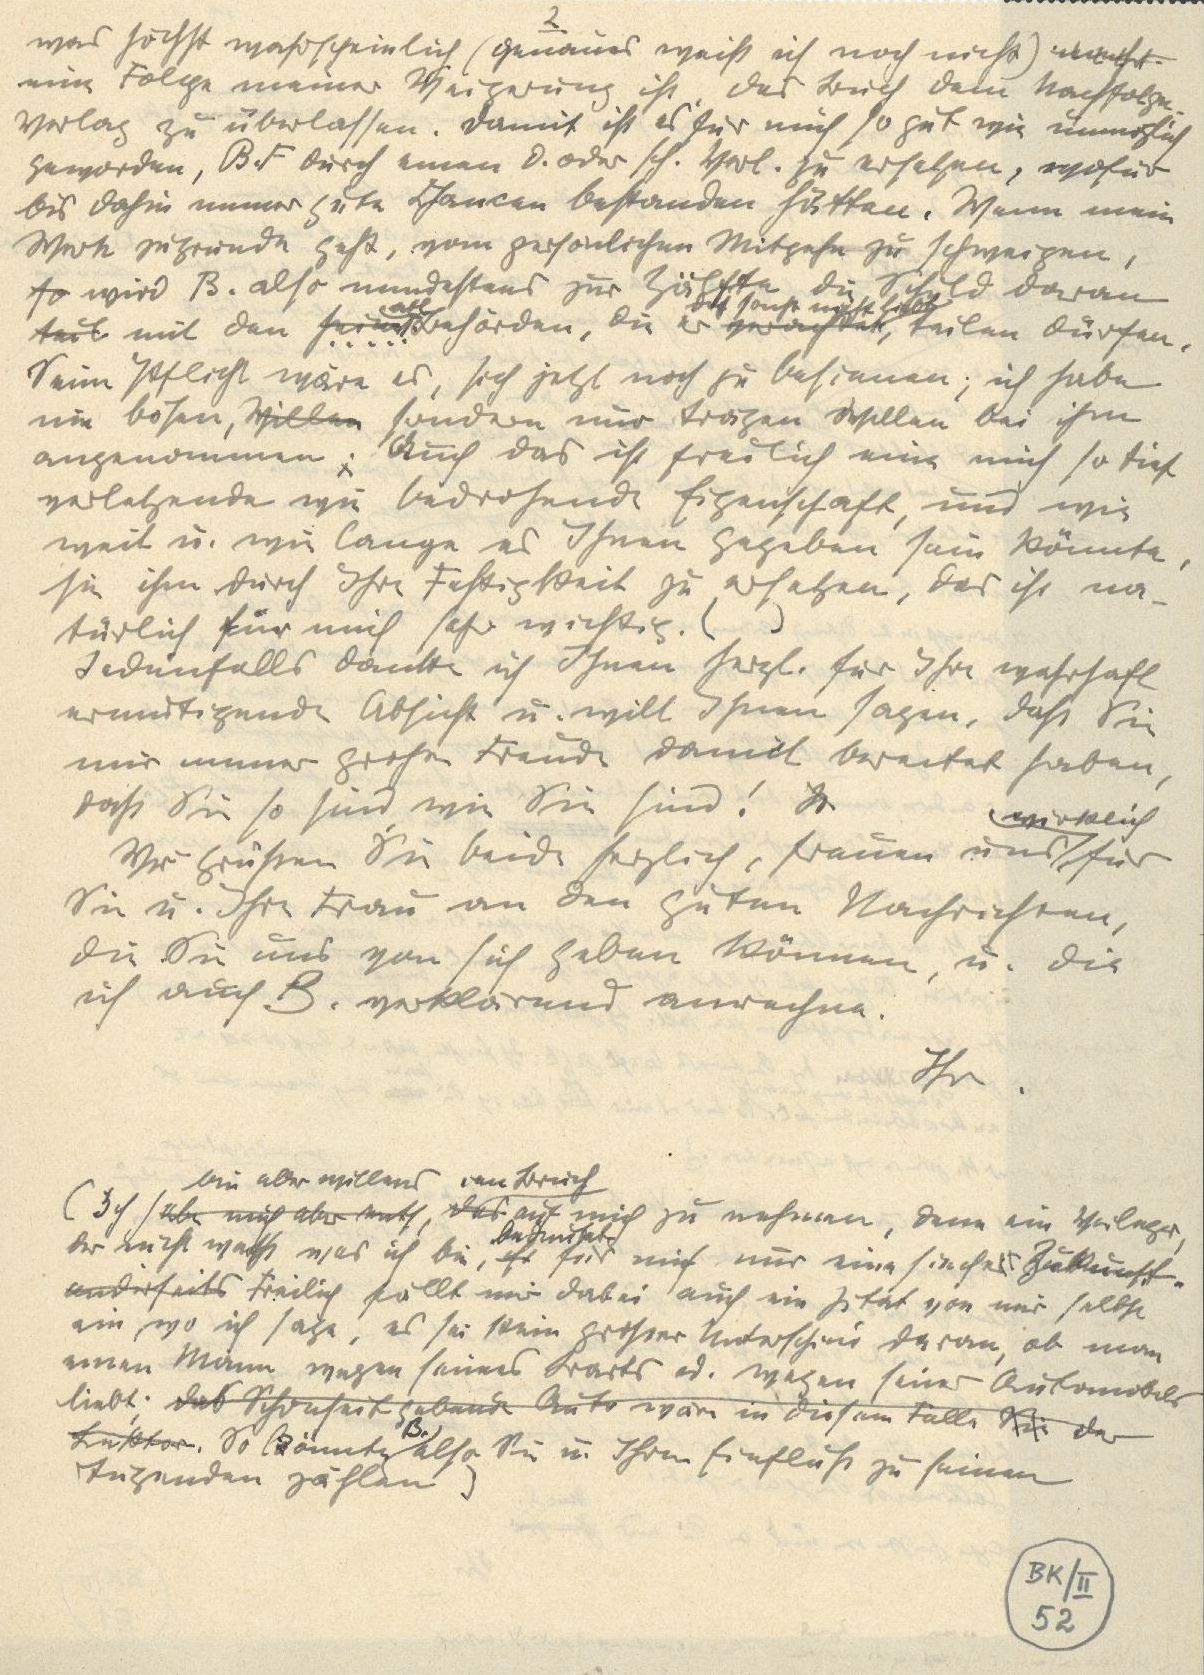 2
was höchst wahrscheinlich (genaues weiß ich noch nicht)
eine Folge meiner Weigerung ist, das Buch dem Nachfolge-
Verlag zu überlassen. Damit ist es für mich so gut wie unmöglich
geworden, B.F durch einen d. oder sch. Verl. zu ersetzen, wofür
bis dahin immer gute Chancen bestanden hätten. Wenn mein
Werk zugrunde geht, vom persönlichen Mitgehn zu schweigen,
so wird B. also mindestens zur Hälfte die Schuld daran
mit den Behörden, die er sonst nicht liebt verachtet, teilen dürfen.
Seine Pflicht wäre es, sich jetzt noch zu besinnen; ich habe
nie bösen, Willen sondern nur trägen Willen bei ihm
angenommen; Auch das ist freilich eine mich so tief
verletzende wie bedrohende Eigenschaft, und wie
weit u. wie lange es Ihnen gegeben sein könnte,
sie ihm durch Ihre Festigkeit zu ersetzen, das ist na-
türlich für mich sehr wichtig. ( )
Jedenfalls danke ich Ihnen herzl. für Ihre wahrhaft
ermutigende Absicht u. will Ihnen sagen, daß Sie
mir immer große Freude damit bereitet haben,
daß Sie so sind, wie Sie sind!
wirklich
Wir grüßen Sie beide herzlich, freuen uns für
Sie u. Ihre Frau an den guten Nachrichten,
die Sie uns von sich geben können, u. die
ich auch B. verklärend anrechne.
Ihr .
bin aber willens den Bruch
(Ich habe mich aber, das auf mich zu nehmen, denn ein Verleger,
bedeutet
der nicht weiß was ich bin, ist für mich nur eine Zukunft.
anderseits Freilich fällt mir dabei auch ein Zitat von mir selbst
ein, wo ich sage, es sei kein großer Unterschied daran, ob man
einen Mann wegen seines Barts od. wegen seines Automobils
liebt; das Schönheit gebende Auto wäre in diesem Falle Sie der
Lektor. So könnte B. also Sie u. Ihren Einfluß zu seinen
Tugenden zählen)
BK/II
52